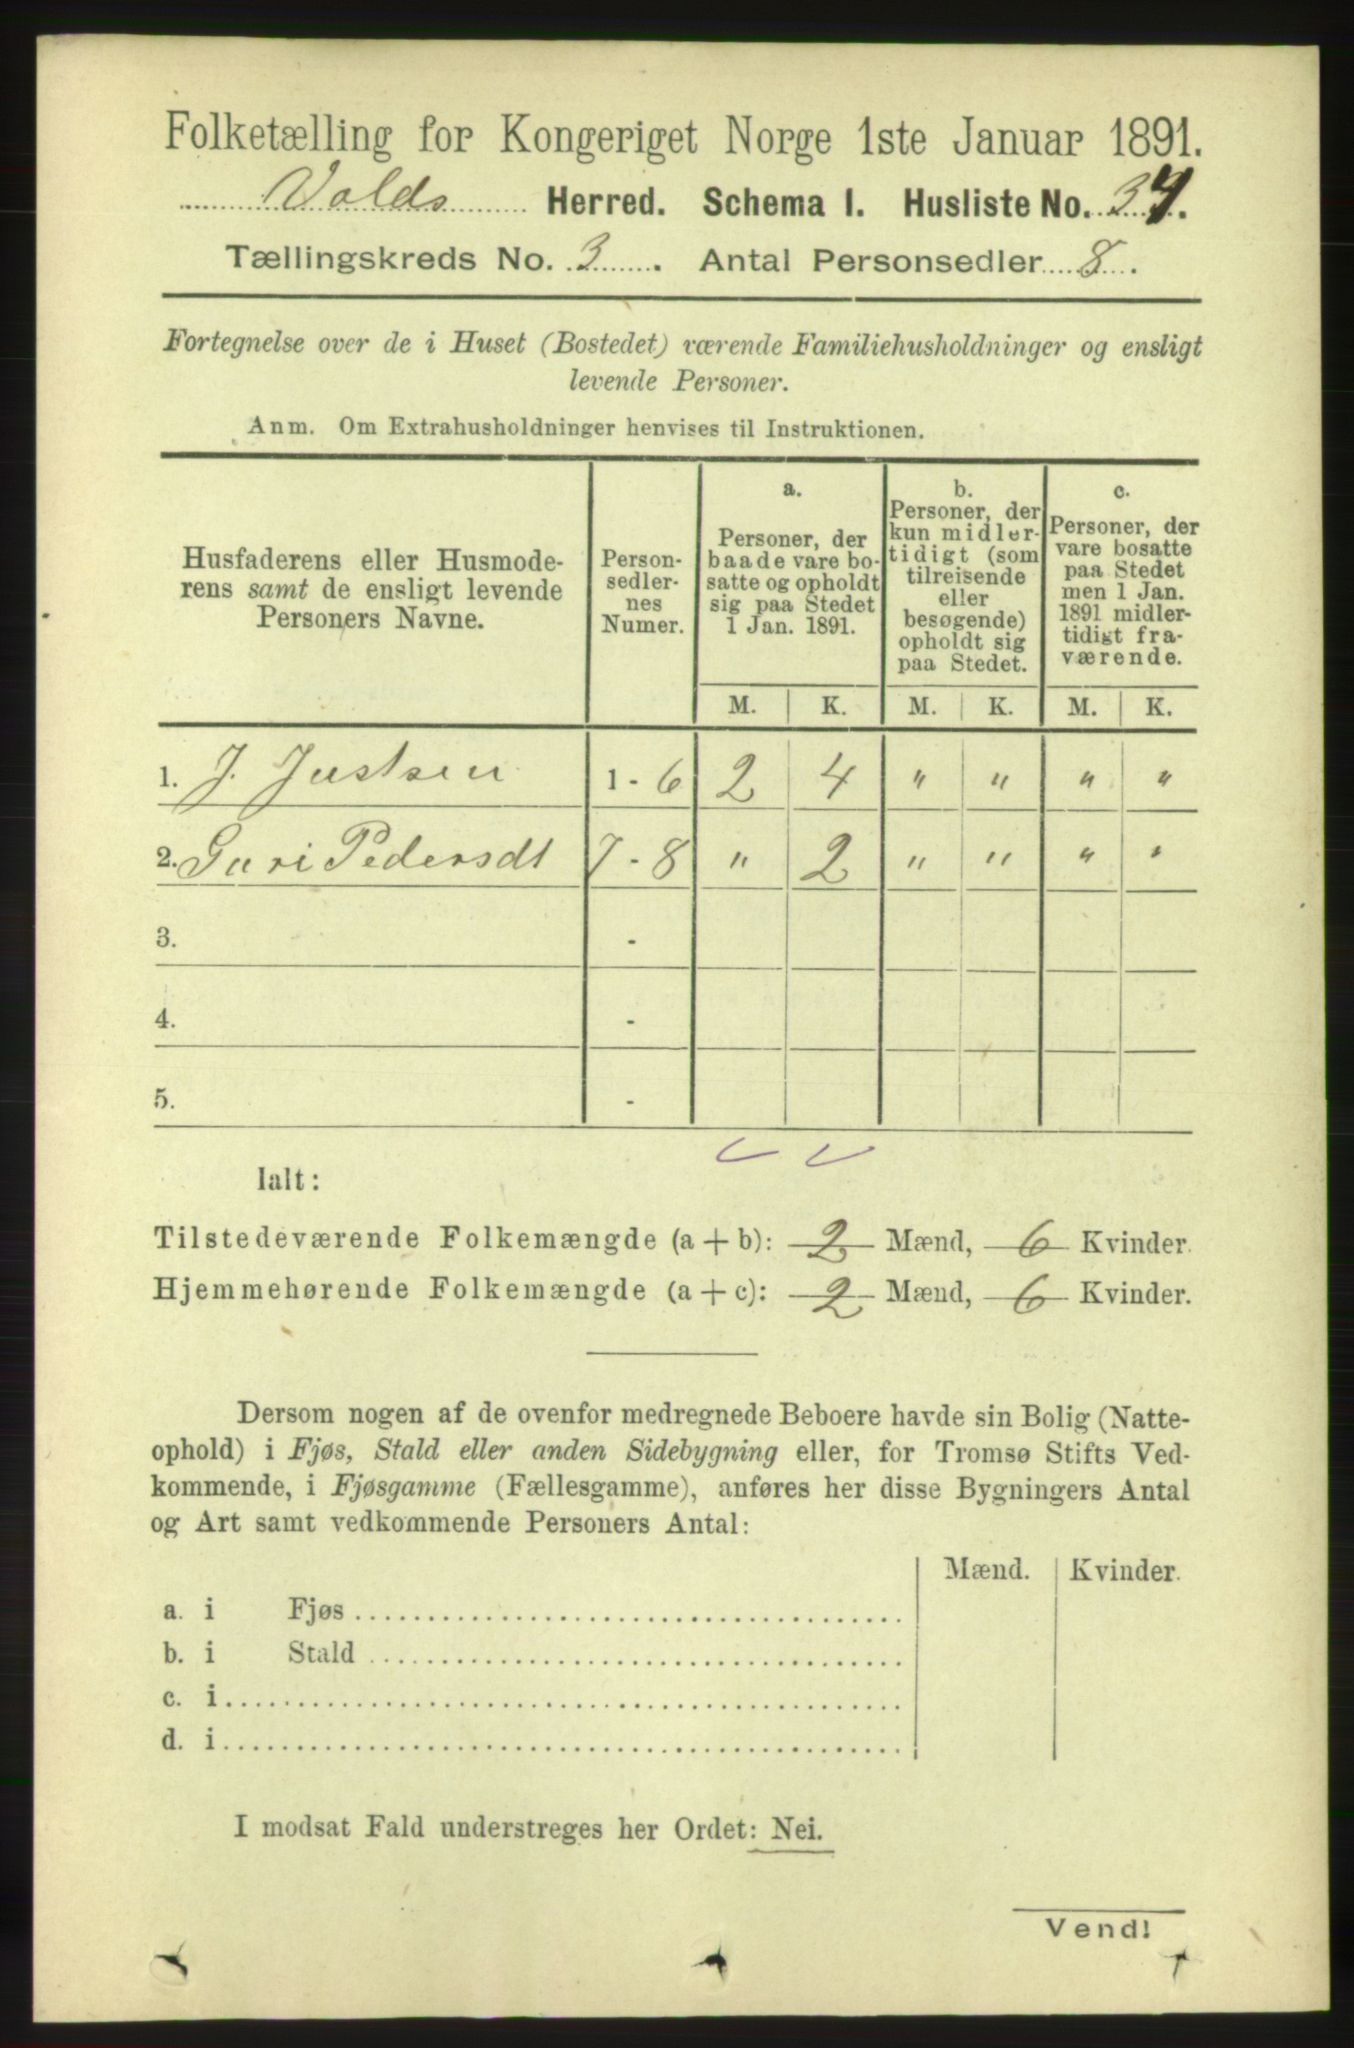 Folketælling for Kongeriget Norge 1ste Januar 1891.
Volds Herred. Schema I. Husliste No. 34.
Tællingskreds No. 3. Antal Personsedler 8.
Fortegnelse over de i Huset (Bostedet) værende Familiehusholdninger og ensligt
levende Personer.
Anm. Om Extrahusholdninger henvises til Instruktionen.
Husfaderens eller Husmode-
rens samt de ensligt levende
Personers Navne.
Person-
sedler-
nes
Numer.
a.
Personer, der
baade vare bo-
satte og opholdt
sig paa Stedet
1 Jan. 1891.
b.
Personer, der
kun midler-
tidigt (som
tilreisende
eller
besøgende)
opholdt sig
paa Stedet.
c.
Personer, der
vare bosatte
paa Stedet
men 1 Jan.
1891 midler-
tidigt fra-
værende.
M. K. M. K. M. K.
1. J. Justsen 1 - 6 2 4 " " " "
2. Guri Pedersdt 7 - 8 " 2 " " " "
3. -
4. -
5. -
Ialt:
Tilstedeværende Folkemængde (a + b): 2 Mænd, 6 Kvinder.
Hjemmehørende Folkemængde (a + c): 2 Mænd, 6 Kvinder.
Dersom nogen af de ovenfor medregnede Beboere havde sin Bolig (Natte-
ophold) i Fjøs, Stald eller anden Sidebygning eller, for Tromsø Stifts Ved-
kommende, i Fjøsgamme (Fællesgamme), anføres her disse Bygningers Antal
og Art samt vedkommende Personers Antal:
Mænd. Kvinder.
a. i Fjøs
b. i Stald
c. i
d. i
I modsat Fald understreges her Ordet: Nei.
Vend!